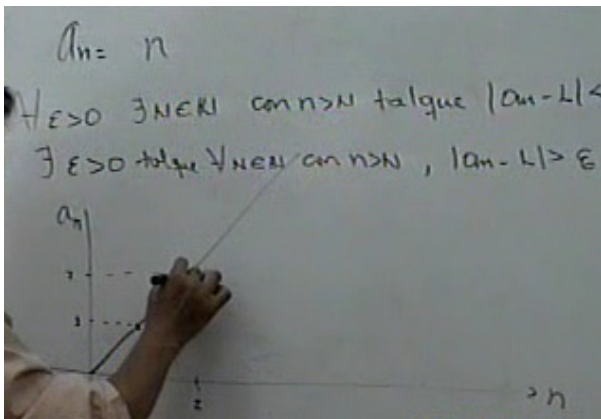 an = n
∀ε>0 ∃N∈ℕ con n>N talque |an-L|<
∃ε>0 talque ∀N∈ℕ con n>N, |an-L|>ε
an
2
n